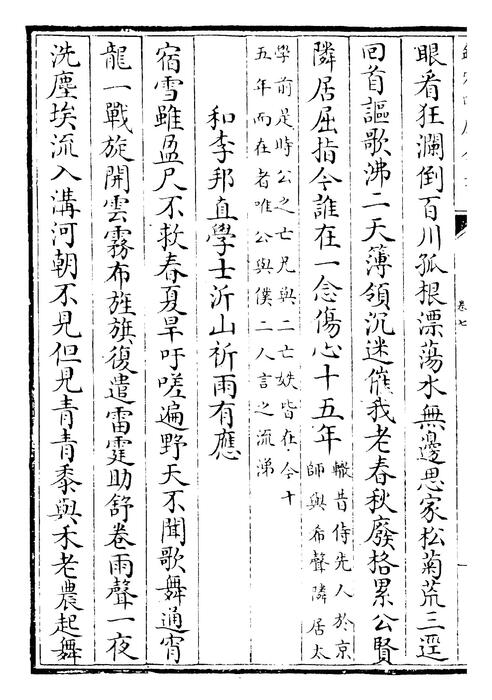 卷七
眼看狂瀾倒百川孤根漂蕩水無邊思家松菊荒三逕
回首謳歌沸二天簿領沉迷催我老春秋廢格累公賢
隣居屈指今誰在一念傷心十五年轍昔侍先人於京師與希聲隣居太
學前是時公之亡兄與二亡姪皆在今十五年而在者唯公與僕二人言之流涕
和李邦直學士沂山祈雨有應
宿雪雖盈尺不救春夏旱吁嗟遍野天不聞歌舞通宵
龍一戰旋開雲霧布旌旗復遣雷霆助舒卷雨聲一夜
洗塵埃流入溝河朝不見但見青青黍與禾老農起舞